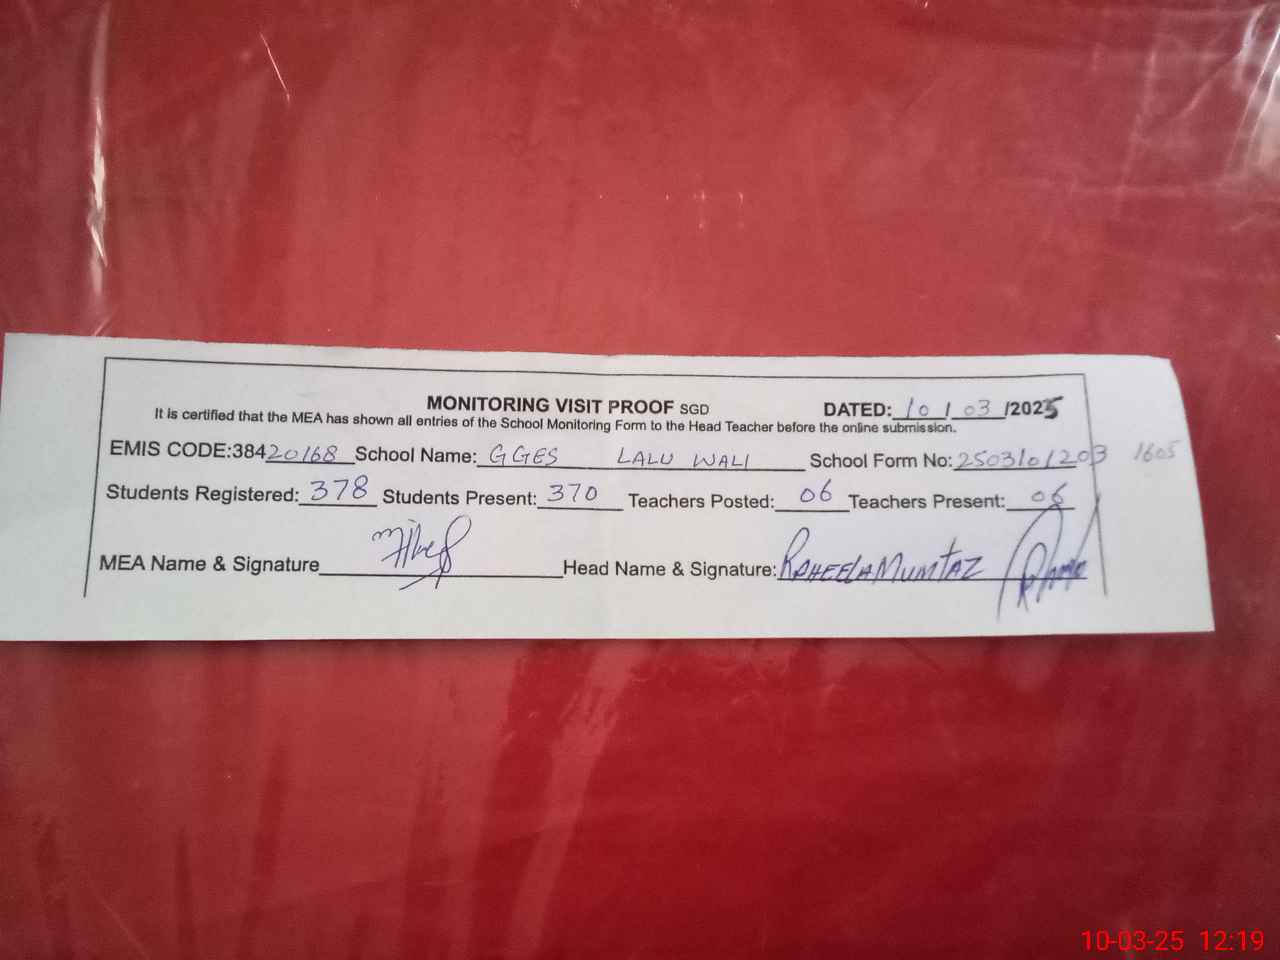 MONITORING VISIT PROOF SGD DATED: 10 / 03 /2025
It is certified that the MEA has shown all entries of the School Monitoring Form to the Head Teacher before the online submission.
EMIS CODE:38420168 School Name: GGES LALU WALI School Form No: 2503101203 1605
Students Registered: 378 Students Present: 370 Teachers Posted: 06 Teachers Present: 06
MEA Name & Signature Head Name & Signature: RAHEELA MUMTAZ
10-03-25 12:19